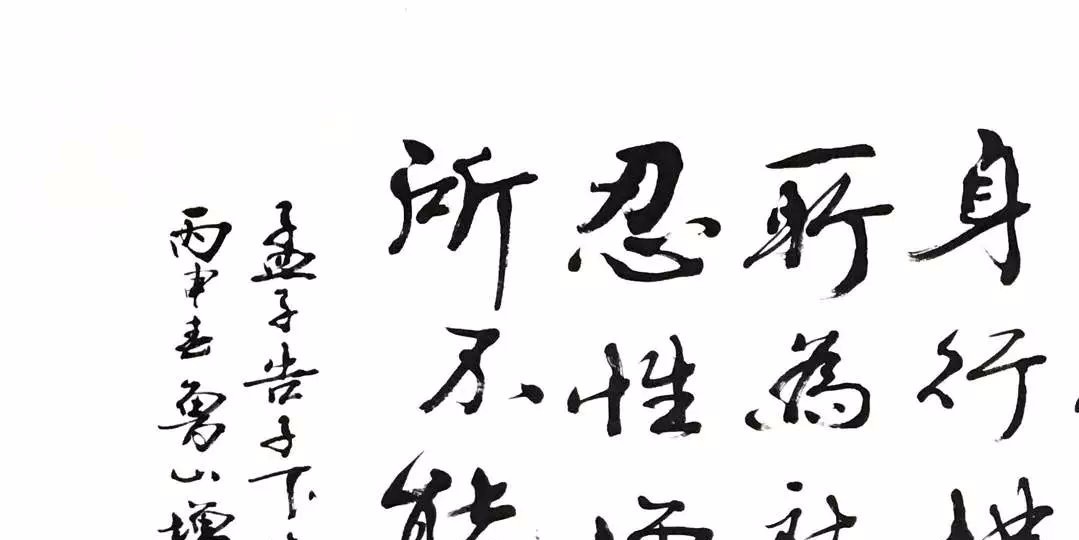 身行
所為
忍性
所不能
孟子告子下
丙申春魯山增